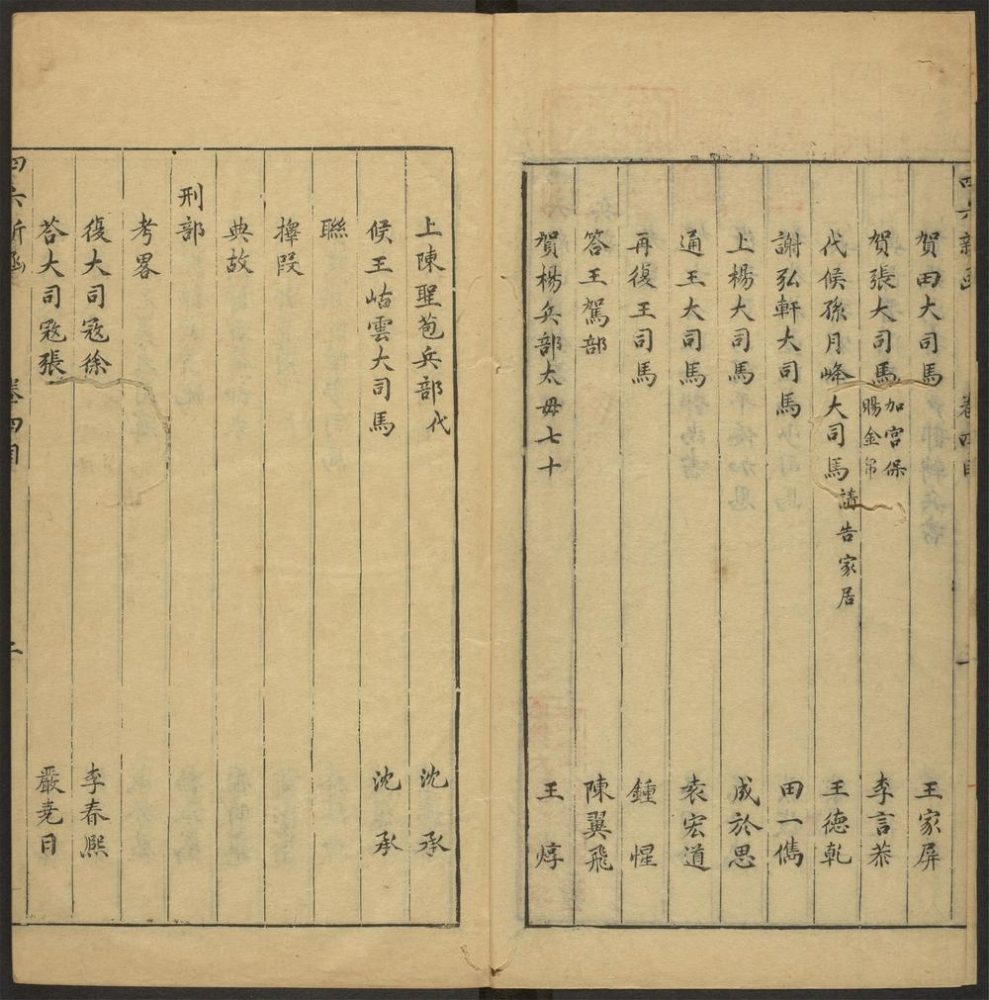 四六新函 卷四目
賀田大司馬 王家屏
賀張大司馬 加宮保賜金帛 李言恭
代候孫月峰大司馬 請告家居 王德乾
謝弘軒大司馬 田一儁
上楊大司馬 成於思
通王大司馬 袁宏道
再復王司馬 鍾惺
答王駕部 陳翼飛
賀楊兵部太母七十 王焞
上陳聖苞兵部代 沈承
候王岵雲大司馬 沈承
聯
摧段
典故
刑部
考畧
復大司寇徐 李春熙
荅大司寇張 嚴堯日
四六新函 卷四目 二